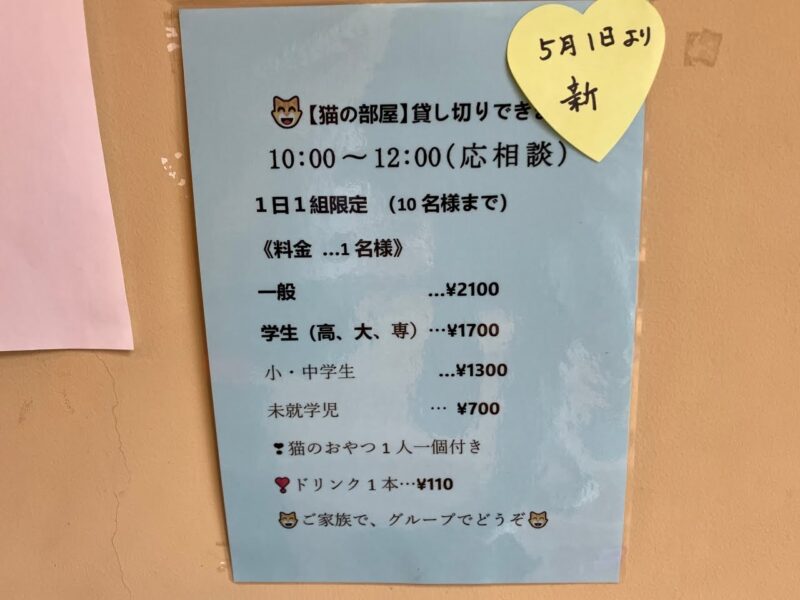 5月1日より
新
【猫の部屋】貸し切りでき
10:00～12:00(応相談)
1日1組限定 (10名様まで)
《料金 …1名様》
一般 …¥2100
学生（高、大、専）…¥1700
小・中学生 …¥1300
未就学児 … ¥700
❣猫のおやつ1人一個付き
ドリンク1本…¥110
ご家族で、グループでどうぞ